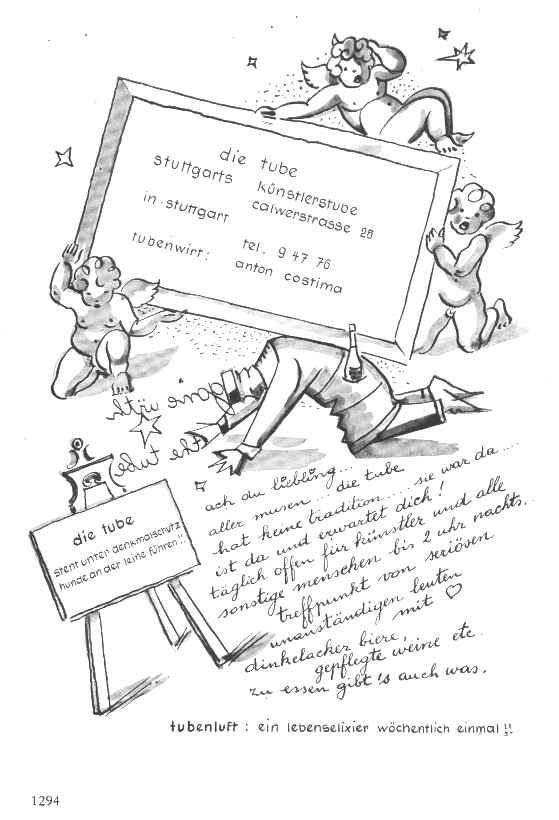 die tube
stuttgarts künstlerstube
in stuttgart calwerstrasse 28
tel. 9 47 76
tubenwirt: anton costima
the tube
die tube
steht unter denkmalschutz
hunde an der leine führen!!
ach du liebling...
aller musen... die tube
hat keine tradition.... sie war da....
ist da und erwartet dich!
täglich offen für künstler und alle
sonstige menschen bis 2 uhr nachts...
treffpunkt von seriösen
unanständigen leuten
mit ♡
dinkelacker biere,
gepflegte weine etc.
zu essen gibt's auch was.
tubenluft : ein lebenselixier wöchentlich einmal!!
1294